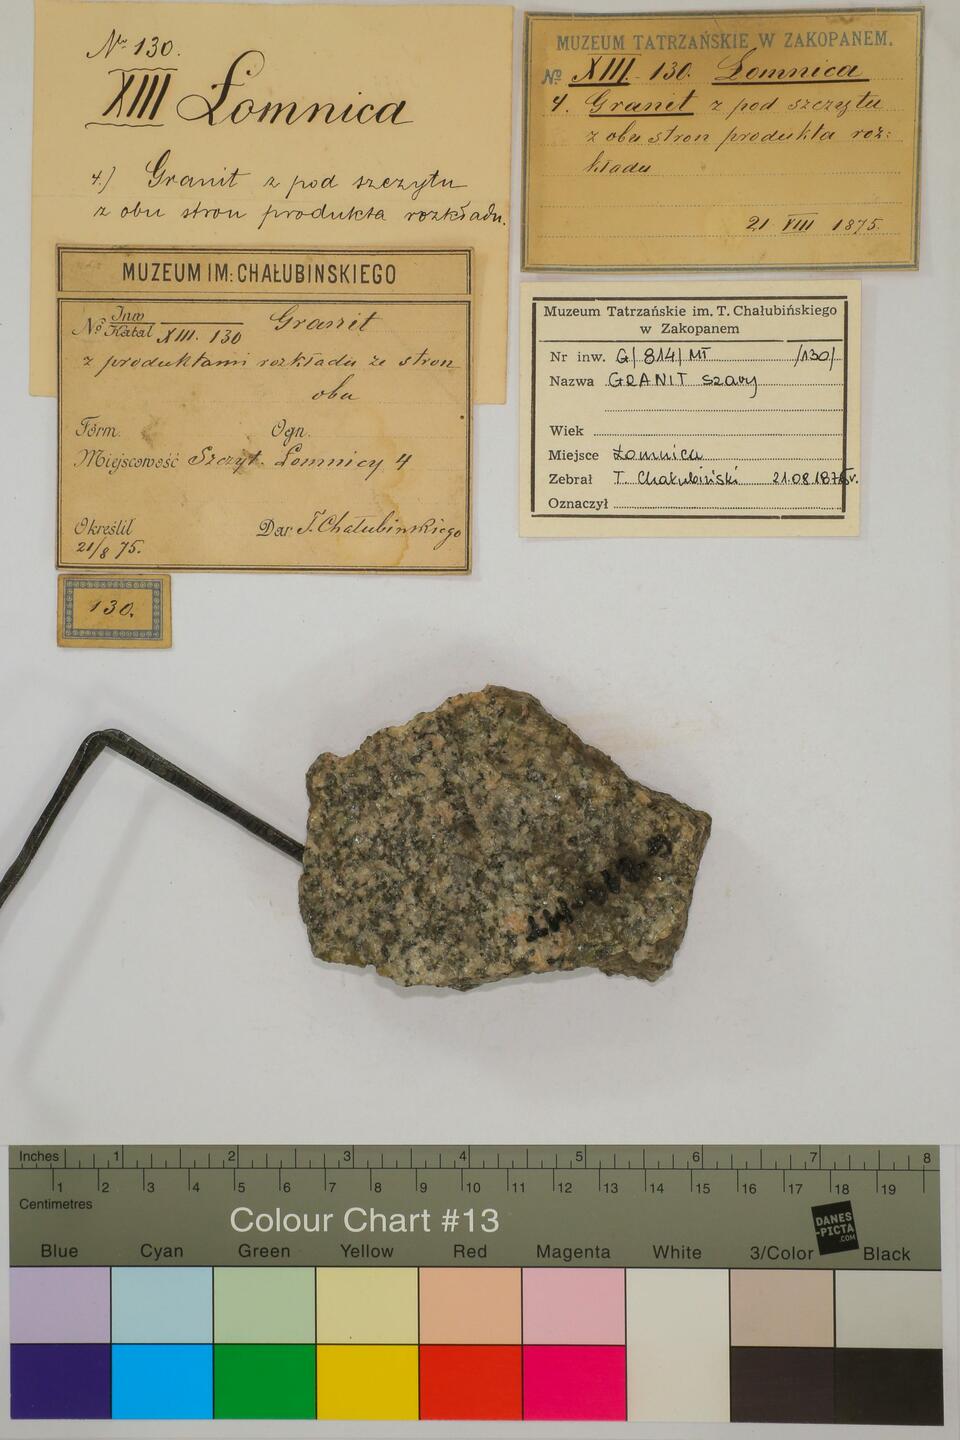 No 130.
XIII Łomnica
4.) Granit z pod szczytu
z obu stron produkta rozkładu.
MUZEUM TATRZAŃSKIE W ZAKOPANEM.
No XIII - 130. Łomnica
4. Granit z pod szczytu
z obu stron produkta roz:
kładu
21 VIII 1875.
MUZEUM IM: CHAŁUBINSKIEGO
No Inw Katal XIII. 130 Granit
z produktami rozkładu ze stron
obu
Form. Ogn.
Miejscowość Szczyt. Łomnicy 4
Określił Dar. T. Chałubinskiego
21/8 75.
130.
Muzeum Tatrzańskie im. T. Chałubińskiego
w Zakopanem
Nr inw. G/814/MT /130/
Nazwa GRANIT szary
Wiek
Miejsce Łomnica
Zebrał T. Chałubiński 21.08.1875r.
Oznaczył
Inches 1 2 3 4 5 6 7 8
1 2 3 4 5 6 7 8 9 10 11 12 13 14 15 16 17 18 19
Centimetres
Colour Chart #13
DANES
-PICTA
.COM
Blue Cyan Green Yellow Red Magenta White 3/Color Black